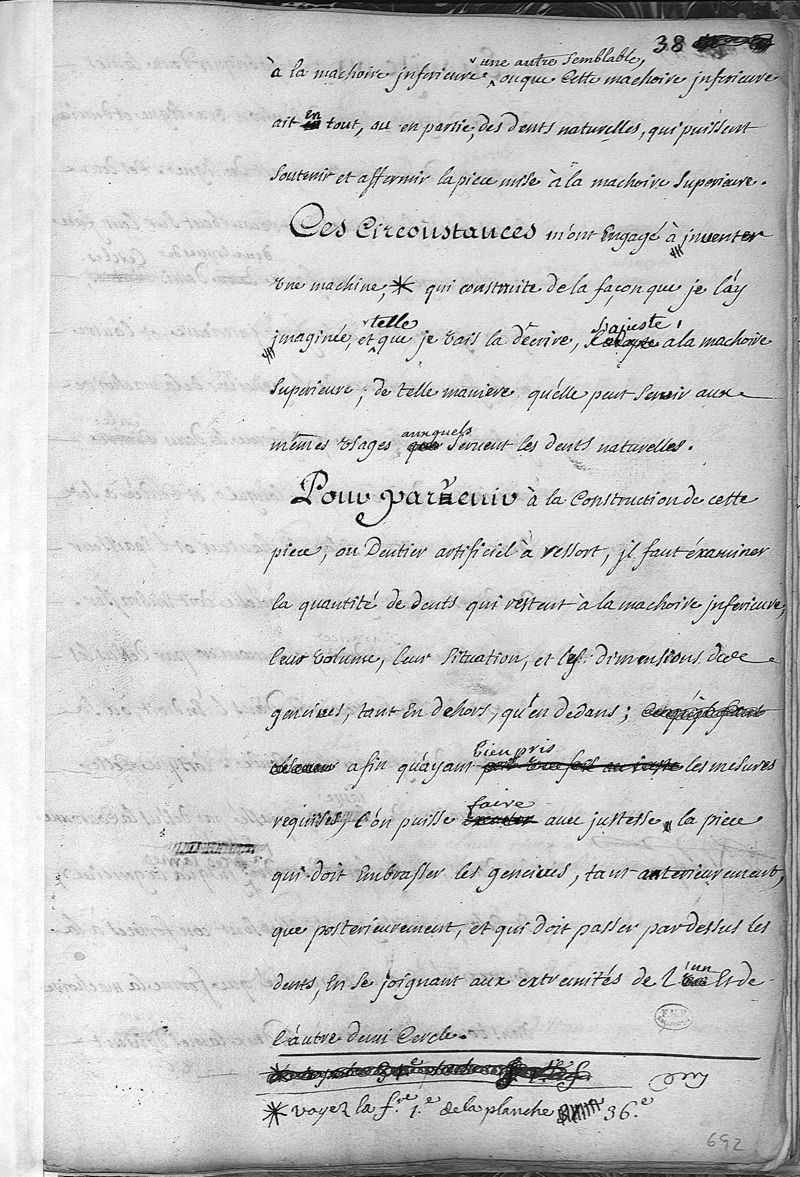 38
à la machoire jnferieure une autre semblable, ou que Cette machoire jnferieure
ait en tout, ou en partie, des dents naturelles, qui puissent
soutenir et affermir la piece mise à la machoire superieure.
Ces Circonstances m'ont Engagé à jnventer
vne machine, * qui construite de la façon que je l'ay
jmaginée, et telle que je vais la décrire, s'ajuste a la machoire
superieure; de telle maniere qu'elle peut servir aux
mêmes vsages auxquels servent les dents naturelles.
Pour parvenir à la Construction de cette
piece, ou Dentier artificiel à ressort, jl faut éxaminer
la quantité de dents qui restent à la machoire jnferieure,
leur volume, leur situation, et les dimensions de
gencives, tant En dehors, qu'en dedans;
afin qu'ayant bien pris les mesures
requises, l'on puisse faire avec justesse la piece
qui doit Embrasser les gencives, tant anterieurement,
que posterieurement, et qui doit passer par dessus les
dents, En se joignant aux extremités de l'un Et de
l'autre demi Cercle.
* voyez la f.re 1.e de la planche 36.e
692